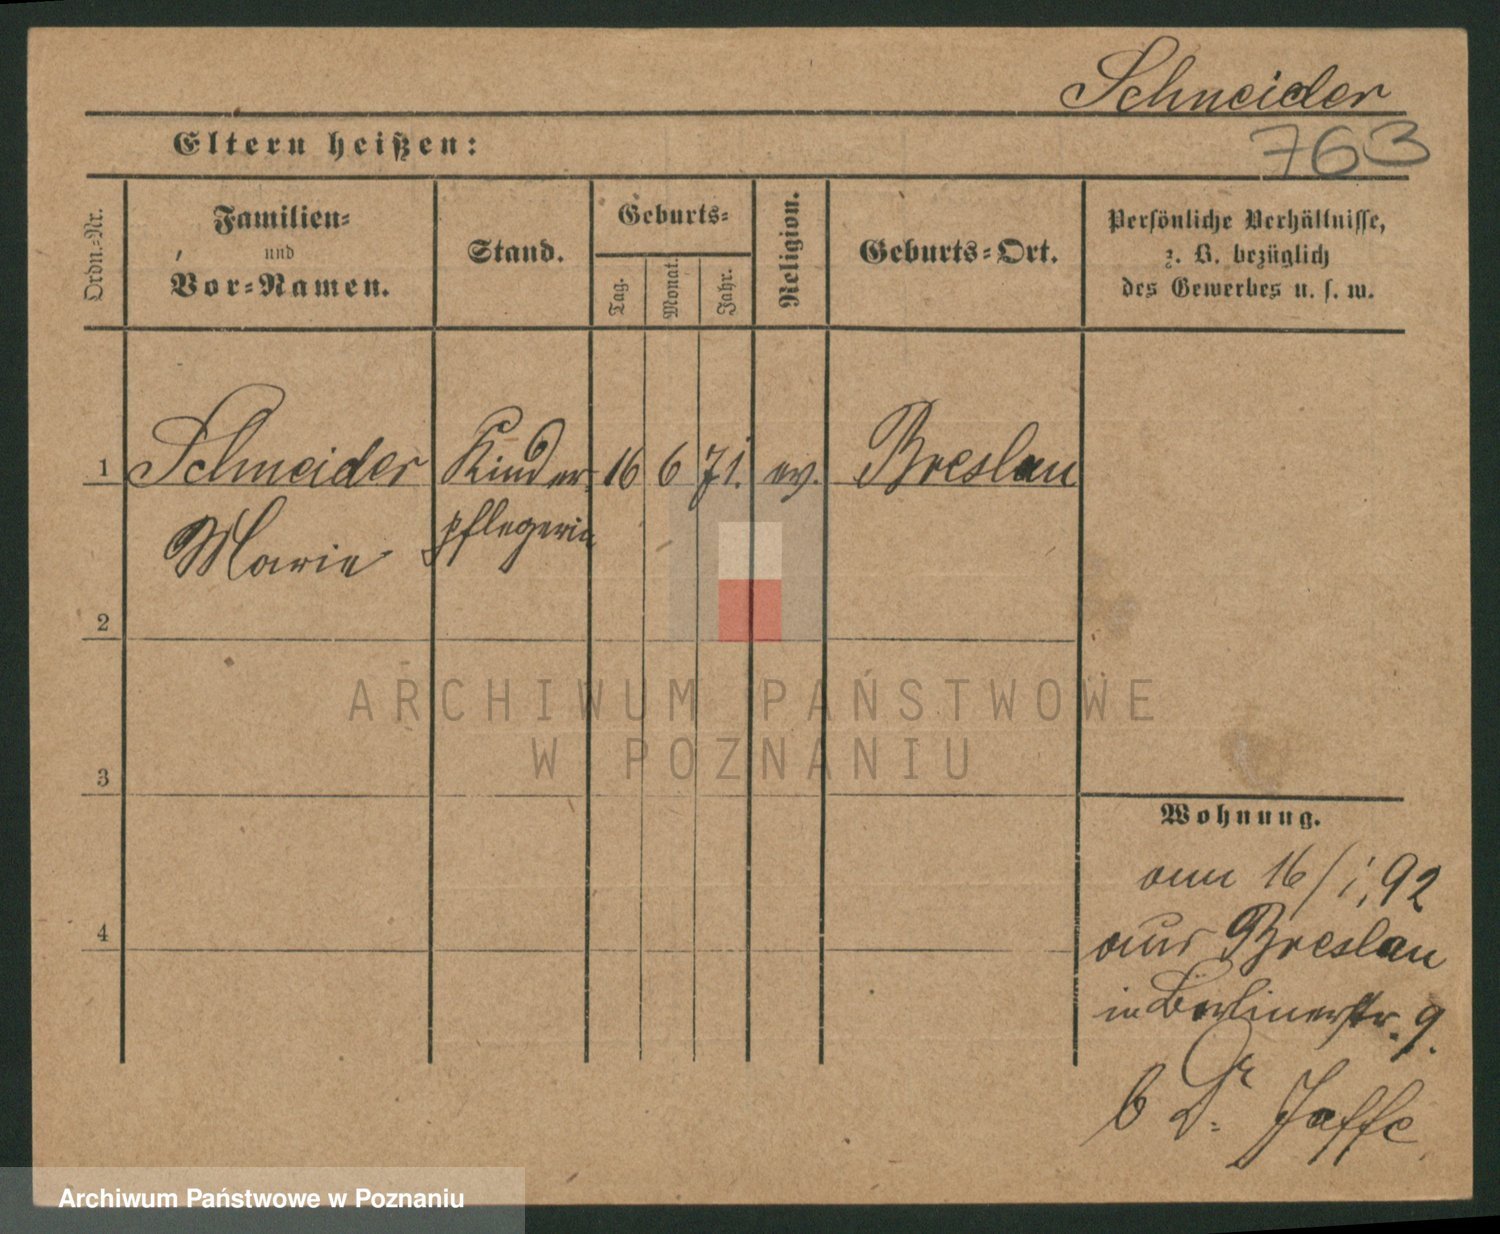 Schneider
Eltern heißen:
763
Ordn.-Nr.
Familien-
und
Vor-Namen.
Stand.
Geburts-
Tag.
Monat.
Jahr.
Religion.
Geburts-Ort.
Persönliche Verhältnisse,
z. B. bezüglich
des Gewerbes u. s. w.
1 Schneider Kinder- 16 6 71. ev. Breslau
Marie pflegerin
2
ARCHIWUM PAŃSTWOWE
W POZNANIU
3
Wohnung.
am 16/1. 92
4
aus Breslau
in Berlinerstr. 9.
b Dr. Jaffe
Archiwum Państwowe w Poznaniu